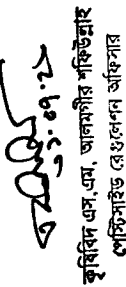 ২১.০৭.২১
কৃষিবিদ এস.এম. আলমগীর শফিউল্লাহ
পেস্টিসাইড রেগুলেশন অফিসার